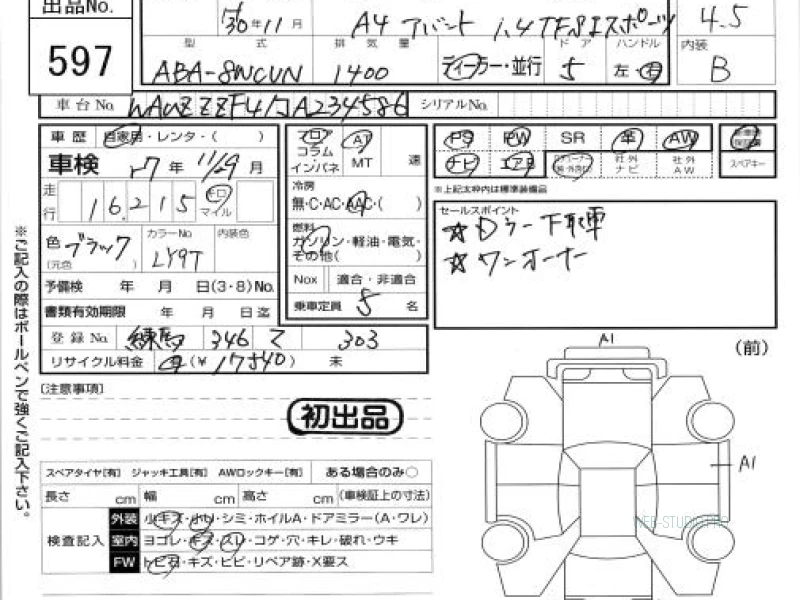 出品No. 597
H30年11月 A4 アバント 1.4TFSIスポーツ 4.5
型式 排気量 ドア ハンドル 内装
ABA-8WCVN 1400 ディーラー・並行 5 左・右 B
車台No. WAUZZZF4 JA234586 シリアルNo.
車歴 自家用・レンタ・( )
フロア コラム インパネ AT MT 速
PS PW SR 革 AW
車検 27年 11/29月
ナビ エアB 社外ナビ 社外AW スペアキー
※上記太枠内は標準装備品
走行 16215 キロ マイル
冷房
無・C・AC・AAC・( )
色 ブラック (元色) カラーNo. LY9T 内装色
燃料
ガソリン・軽油・電気・その他( )
セールスポイント
☆Dラー下取車
☆ワンオーナー
予備検 年 月 日(3・8)No.
Nox 適合・非適合
書類有効期限 年 月 日迄
乗車定員 5 名
登録No. 練馬 346 て 303
リサイクル料金 済(¥ 17540) 未
※ご記入の際はボールペンで強くご記入下さい。
[注意事項]
初出品
スペアタイヤ[有] ジャッキ工具[有] AWロックキー[有] ある場合のみ○
長さ cm 幅 cm 高さ cm (車検証上の寸法)
検査記入
外装 少キズ・小凹・シミ・ホイルA・ドアミラー(A・ワレ)
室内 ヨゴレ・キズ・スレ・コゲ・穴・キレ・破れ・ウキ
FW トビ石・キズ・ヒビ・リペア跡・X要ス
A1
(前)
A1